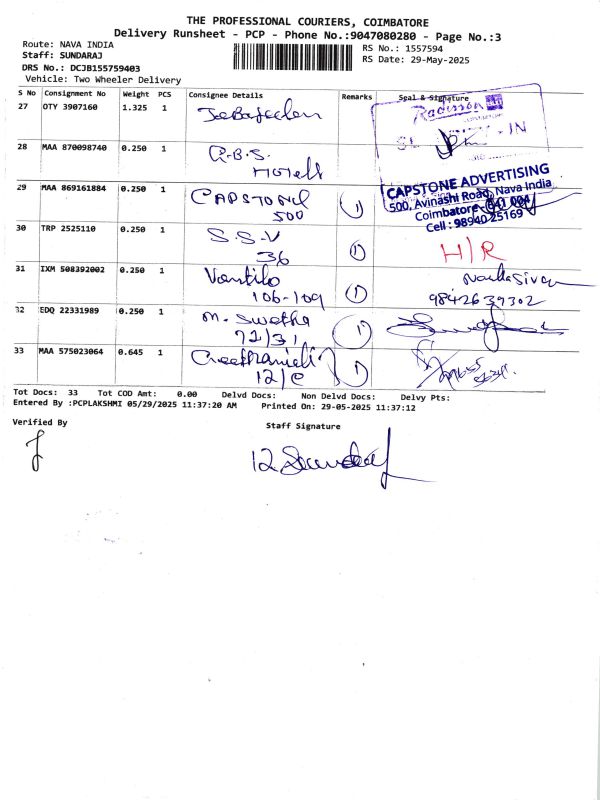 THE PROFESSIONAL COURIERS, COIMBATORE
Delivery Runsheet - PCP - Phone No.:9047080280 - Page No.:3
Route: NAVA INDIA
RS No.: 1557594
Staff: SUNDARAJ
RS Date: 29-May-2025
DRS No.: DCJB155759403
Vehicle: Two Wheeler Delivery
S No Consignment No Weight PCS Consignee Details Remarks Seal & Signature
27 OTY 3907160 1.325 1
Radisson
28 MAA 870098740 0.250 1 R.B.S.
Hotels
29 MAA 869161884 0.250 1 CAPSTONE
500 1
CAPSTONE ADVERTISING
500, Avinashi Road, Nava India
Coimbatore - 641 004
Cell : 98940 25169
30 TRP 2525110 0.250 1 S.S.V
36 1 H/R
31 IXM 508392002 0.250 1
106-109 1 9842639302
32 EDQ 22331989 0.250 1 M. Swetha
72/31 1
33 MAA 575023064 0.645 1
12/C 1
Tot Docs: 33 Tot COD Amt: 0.00 Delvd Docs: Non Delvd Docs: Delvy Pts:
Entered By :PCPLAKSHMI 05/29/2025 11:37:20 AM Printed On: 29-05-2025 11:37:12
Verified By
Staff Signature